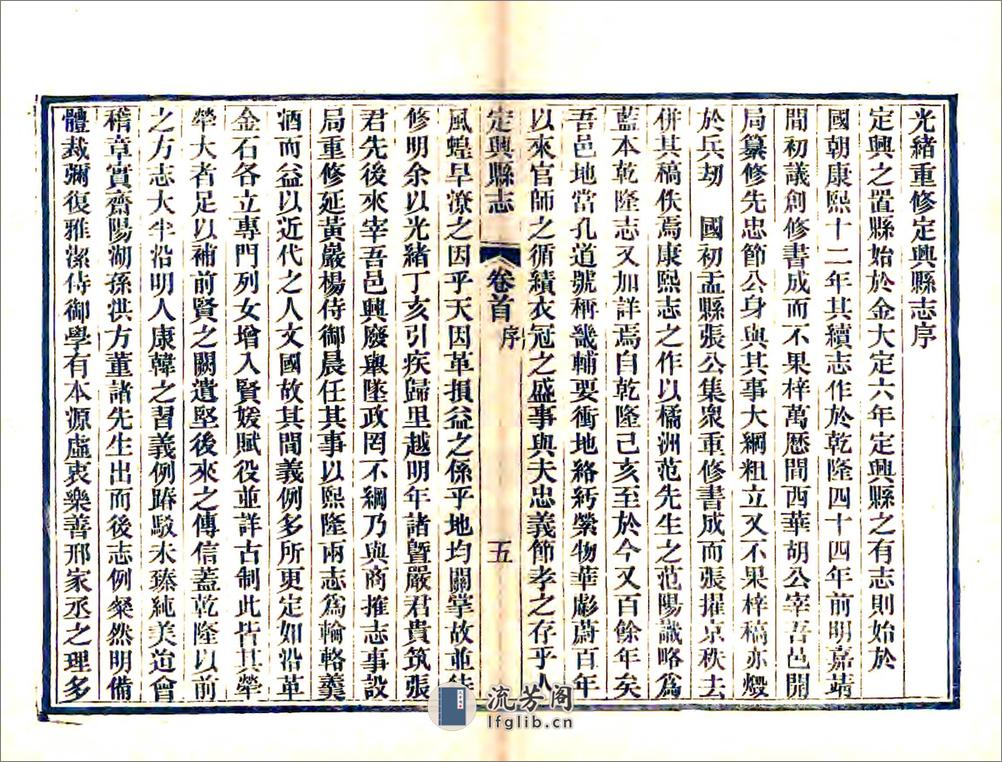 光緒重修定興縣志序
定興之置縣始於金大定六年定興縣之有志則始於
國朝康熙十二年其續志作於乾隆四十四年前明嘉靖
間初議創修書成而不果梓萬歷間西華胡公宰吾邑開
局纂修先忠節公身與其事大綱粗立又不果梓稿亦燬
於兵劫 國初孟縣張公集衆重修書成而張擢京秩去
併其稿佚焉康熙志之作以橘洲范先生之范陽識略爲
藍本乾隆志又加詳焉自乾隆己亥至於今又百餘年矣
吾邑地當孔道號稱畿輔要衝地絡紆縈物華彪蔚百年
以來官師之循績衣冠之盛事與夫忠義節孝之存乎人
定興縣志 卷首 序 五
風蝗旱潦之因乎天因革損益之係乎地均關掌故並待
修明余以光緒丁亥引疾歸里越明年諸暨嚴君貴筑張
君先後來宰吾邑興廢舉墜政罔不綱乃與商搉志事設
局重修延黃巖楊侍御晨任其事以熙隆兩志爲輪輅羹
酒而益以近代之人文國故其間義例多所更定如沿革
金石各立專門列女增入賢媛賦役並詳古制此皆其犖
犖大者足以補前賢之闕遺堅後來之傳信蓋乾隆以前
之方志大半沿明人康韓之習義例踳駮未臻純美迨會
稽章實齋陽湖孫洪方董諸先生出而後志例粲然明備
體裁彌復雅潔侍御學有本源虛衷樂善邢家丞之理多
流芳阁
lfglib.cn